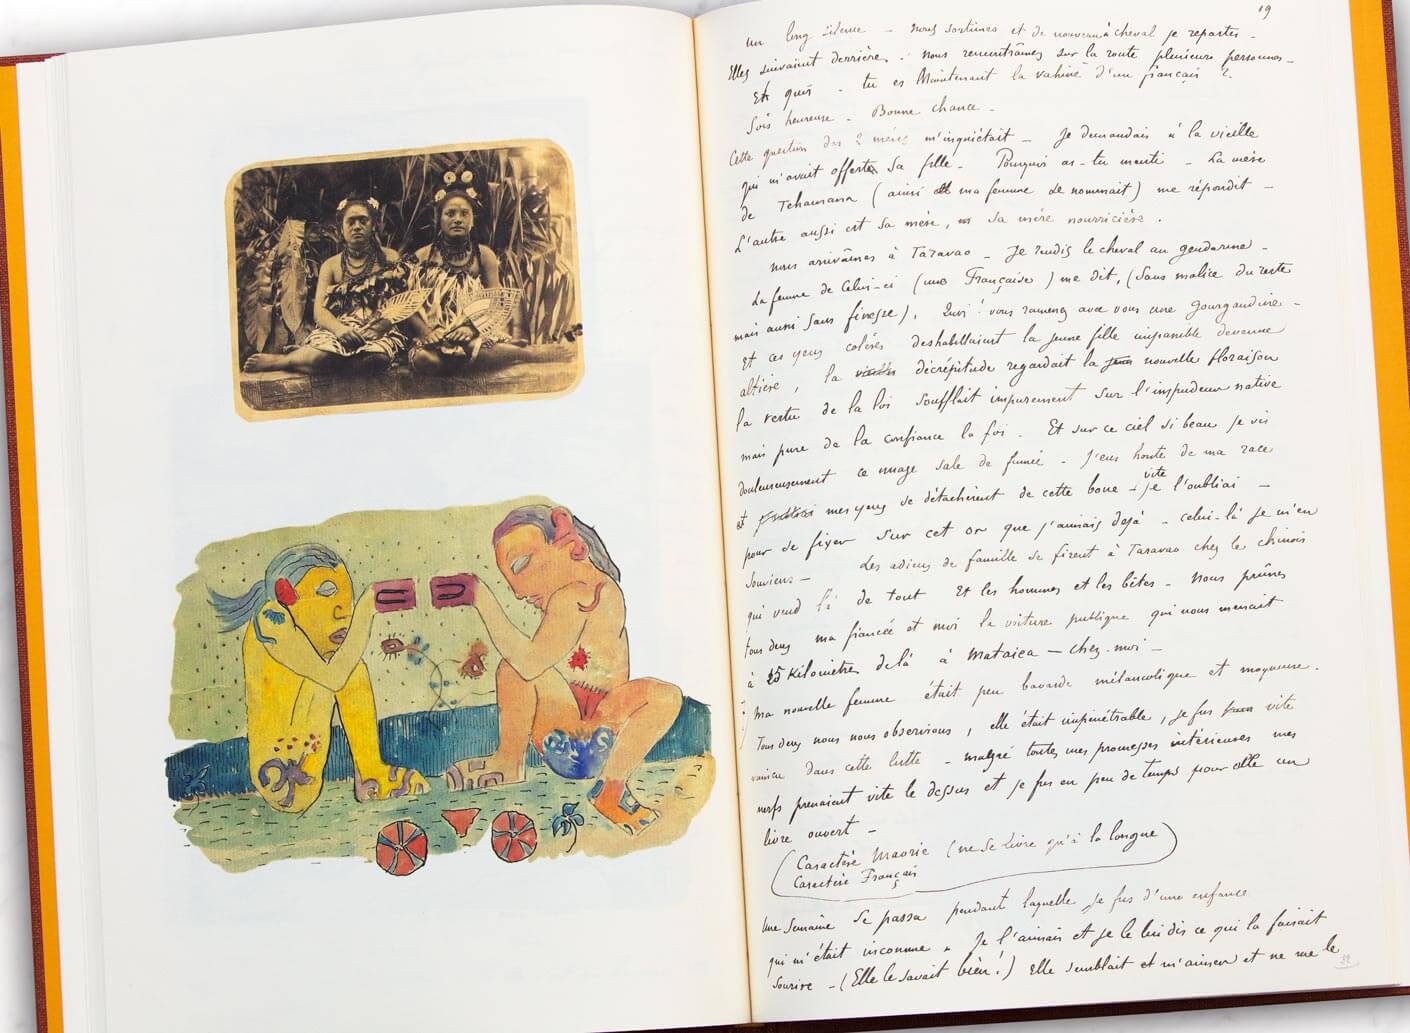 19
un long silence _ nous sortîmes et de nouveau à cheval je repartis _
Elles suivaient derrière . nous rencontrâmes sur la route plusieurs personnes _
Et quoi _ tu es Maintenant la vahiné d'un français ?
Sois heureuse _ Bonne chance _
Cette question des 2 mères m'inquiétait _ Je demandais à la vieille
qui m'avait offert sa fille _ Pourquoi as-tu menti _ La mère
de Tehamana (ainsi ma femme se nommait) me répondit _
L'autre aussi est sa mère, sa mère nourricière .
nous arrivâmes à Taravao _ Je rendis le cheval au gendarme _
La femme de celui-ci (une Française) me dit, (sans malice du reste
mais aussi sans finesse), Quoi ! vous ramenez avec vous une gourgandine _
Et ces yeux colères deshabillaient la jeune fille impassible devenue
altière , la décrépitude regardait la nouvelle floraison
la vertu de la loi soufflait impurement sur l'impudeur native
mais pure de la confiance la foi . Et sur ce ciel si beau je vis
douloureusement ce nuage sale de fumée _ J'eus honte de ma race
vite
et mes yeux se détachèrent de cette boue _ je l'oubliai _
pour se fixer sur cet or que j'aimais déjà _ celui-là je m'en
souviens _ Les adieux de famille se firent à Taravao chez le chinois
qui vend là de tout Et les hommes et les bêtes _ Nous prîmes
tous deux ma fiancée et moi la voiture publique qui nous menait
à 25 Kilomètres de là à Mataiea — chez moi —
Ma nouvelle femme était peu bavarde mélancolique et moqueuse .
Tous deux nous nous observions , elle était impénétrable , je fus vite
vaincu dans cette lutte _ malgré toutes mes promesses intérieures mes
nerfs prenaient vite le dessus et je fus en peu de temps pour elle un
livre ouvert _
(Caractère Maorie (ne se livre qu'à la longue)
Caractère Français
Une semaine se passa pendant laquelle je fus d'une enfance
qui m'était inconnue . Je l'aimais et je le lui dis ce qui la faisait
sourire _ (Elle le savait bien !) Elle semblait et m'aimer et ne me le